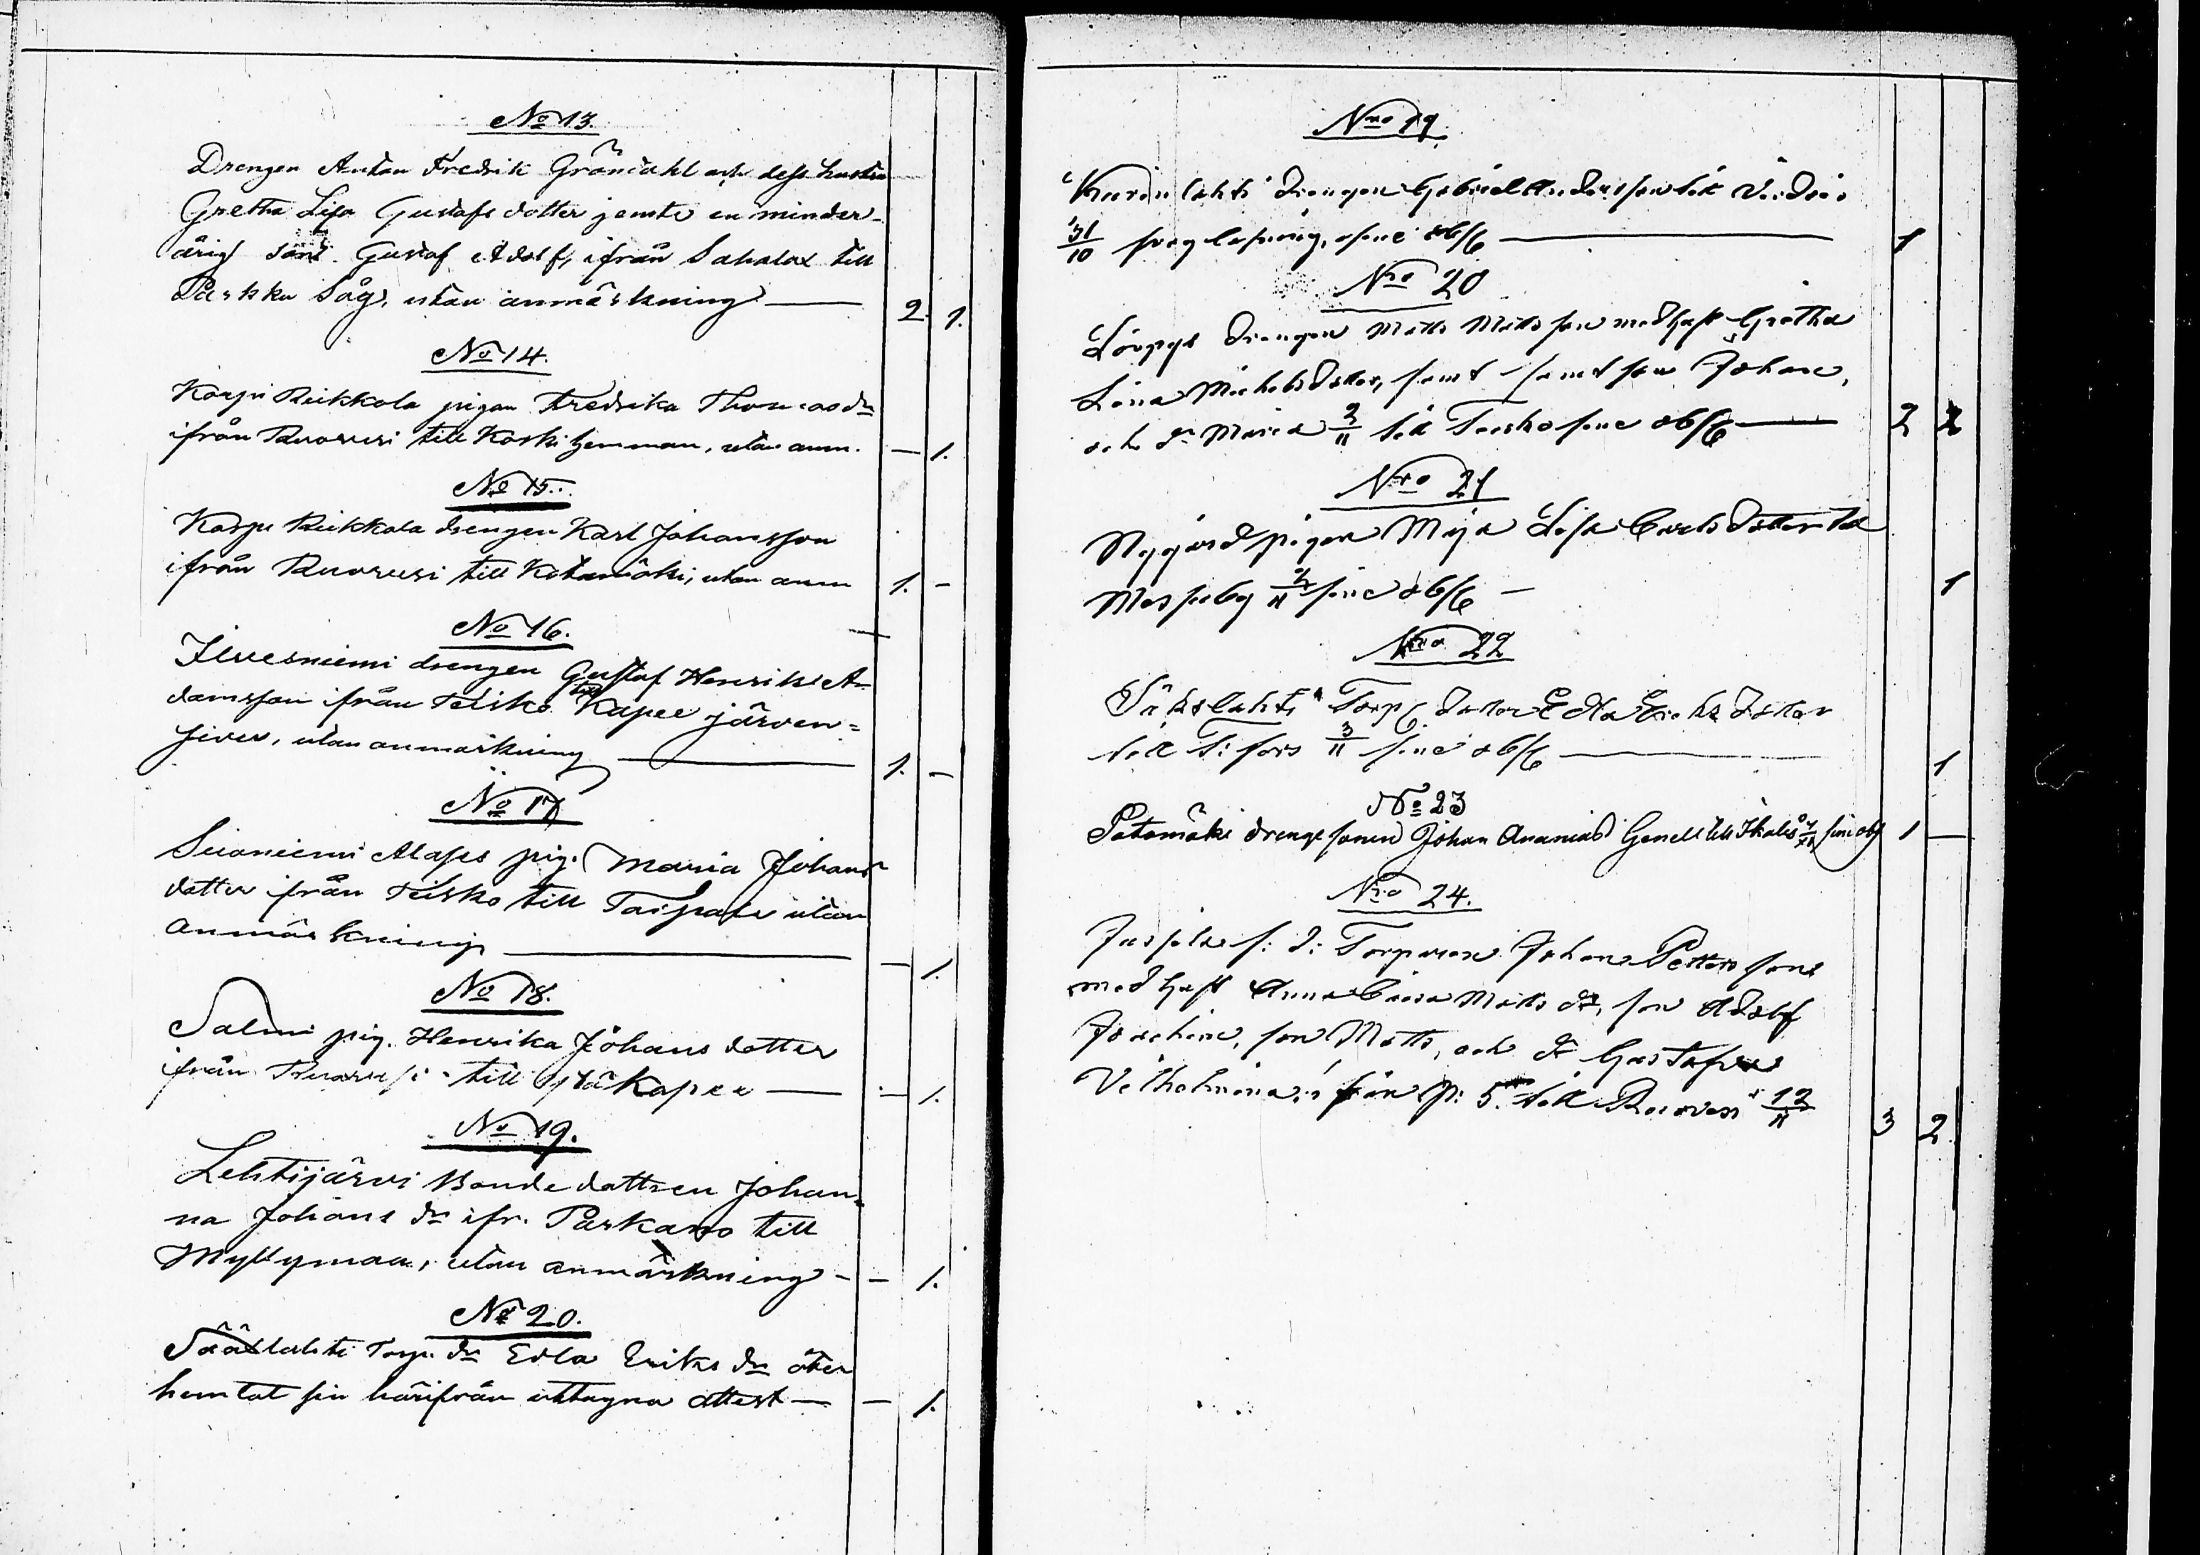 No 13.
Drengen Anton Fredrik Gröndahl och dess hustru
Gretha Lisa Gustafsdotter jemte en minder-
årig son Gustaf Adolf, ifrån Sahalax till
Parkku Såg, utan anmärkning — 2. 1.
No 14.
Karju Riikkola pigan Fredrika Thomasdr
ifrån Ruovesi till Koski hemman, utan anm. — 1.
No 15.
Karju Riikkola drengen Karl Johansson
ifrån Ruovesi till Kotamäki, utan anm 1. -
No 16.
Ilvesniemi drengen Gustaf Henrik A-
damsson ifrån Teisko till Kapee järven-
sivu, utan anmärkning — 1. —
No 17
Sianiemi pig. Maria Johans
dotter ifrån Teisko till Taipale utan
anmärkning — — 1.
No 18.
Salmi pig. Henrika Johans dotter
ifrån Ruovesi till Kapee — — 1.
No 19.
Lehtijärvi Bonde dottren Johan-
na Johans dr ifr. Parkano till
Myllymaa, utan anmärkning - — 1.
No 20.
Säkslahti Torp. dr Edla Eriks dr åter
hemtat sin härifrån uttagna attest — — 1.
Nro 19.
drengen Gabriel Andersson till
31/10 sine obs — 1
Nro 20
drengen Matts Mattsson med hust Gretha
Lena Michelsdotter, samt son Johan,
och dr Maria 2/11 till Teisko sine obs — 2 2
Nro 21
Nygård pigan Maja Lisa Carlsdotter till
Messuby 2/11 sine obs — 1
Nro 22
Säkslahti Torp. dotter Edla Eriksdotter
till T:fors 3/11 sine obs — 1
No 23
Potomäki drengesonen Johan Ananias Genell till Ikalis sine obs 1 —
Nro 24.
f: d: Torparen Johan Petterson
med hust Anna Caisa Matts dr, son Adolf
Joachim, son Matts, och dr Gustafva
Vilhelmina, p: 5. till Ruovesi 12/11 3 2.